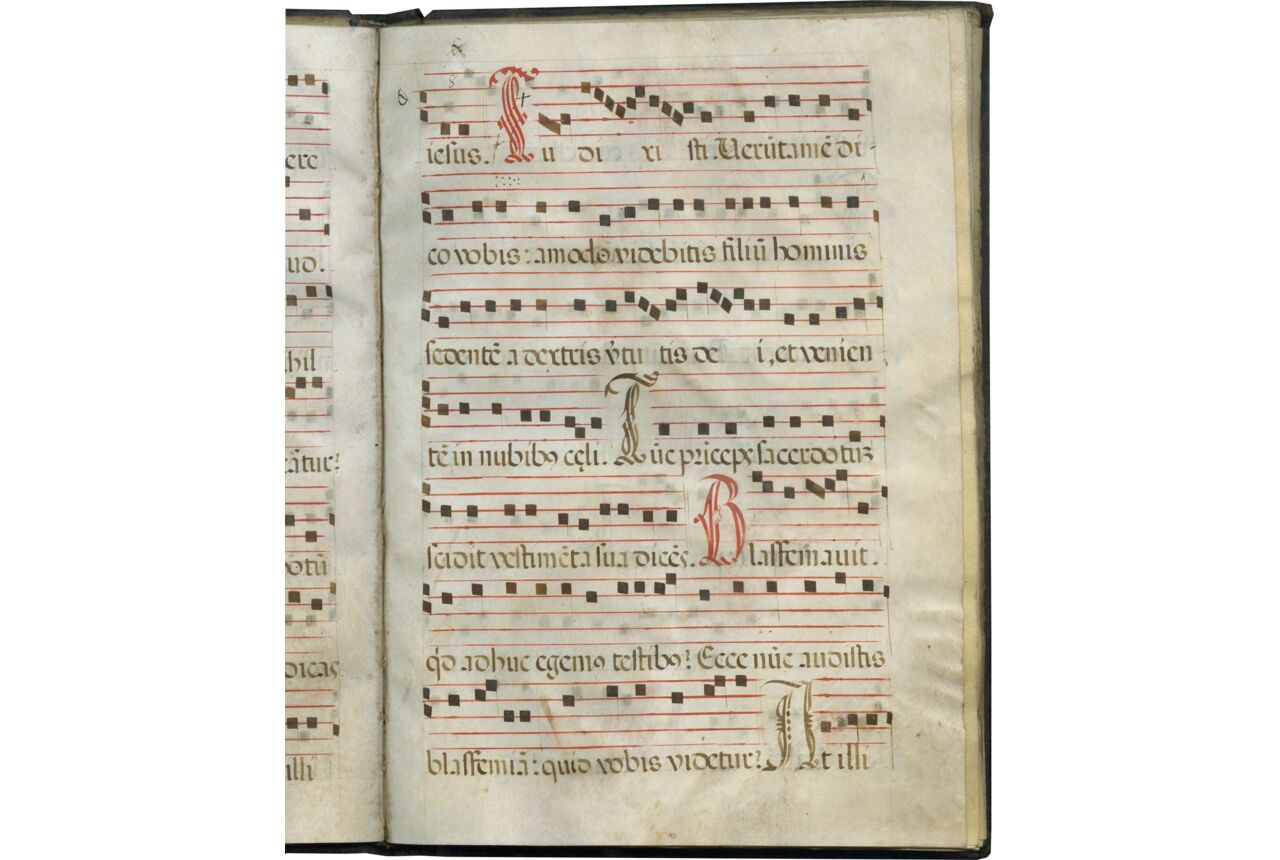 ere
iesus. Tu di xi sti. Uerūtamē di-
co vobis: amodo videbitis filiū hominis
sedentē a dextris v̄tu tis de i, et venien
hil
tē in nubibꝯ cęli. Tūc prīceps sacerdotuʒ
ātur?
scidit vestimēta sua dicēs. Blasfemauit.
otū
qd̄ adhuc egemꝯ testibꝯ? Ecce nūc audistis
dicas
blasfemiā: quid vobis videtur? At illi
illi